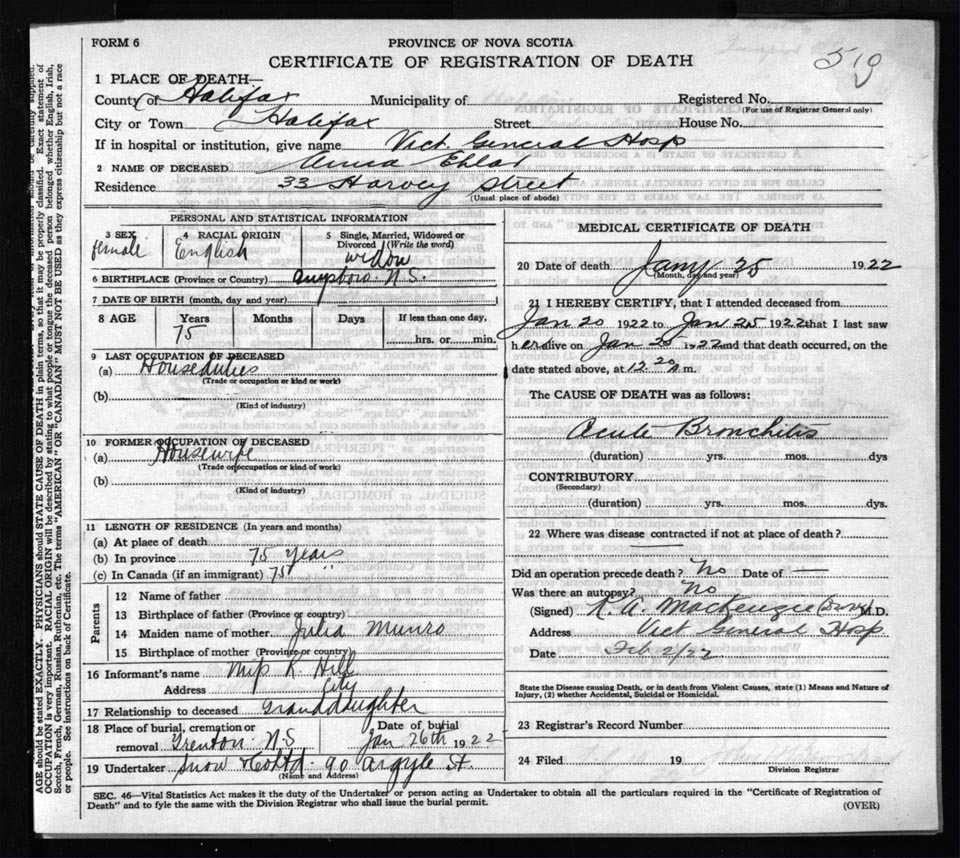 FORM 6
PROVINCE OF NOVA SCOTIA
CERTIFICATE OF REGISTRATION OF DEATH
510
1 PLACE OF DEATH—
County of Halifax Municipality of Registered No.
(For use of Registrar General only)
City or Town Halifax Street House No.
If in hospital or institution, give name Vict. General Hosp
2 NAME OF DECEASED
Residence 33 Harvey Street
(Usual place of abode)
PERSONAL AND STATISTICAL INFORMATION
3 SEX female
4 RACIAL ORIGIN English
5 Single, Married, Widowed or Divorced (Write the word) widow
6 BIRTHPLACE (Province or Country) N.S.
7 DATE OF BIRTH (month, day, and year)
8 AGE Years 75 Months Days If less than one day, hrs. or min.
9 LAST OCCUPATION OF DECEASED
(a) Houseduties
(Trade or occupation or kind of work)
(b)
(Kind of industry)
10 FORMER OCCUPATION OF DECEASED
(a) Housewife
(Trade or occupation or kind of work)
(b)
(Kind of industry)
11 LENGTH OF RESIDENCE (In years and months)
(a) At place of death
(b) In province 75 years
(c) In Canada (if an immigrant) 75 "
Parents
12 Name of father
13 Birthplace of father (Province or country)
14 Maiden name of mother Julia Munro
15 Birthplace of mother (Province or country)
16 Informant's name Miss R. Hill
Address City
17 Relationship to deceased Granddaughter
18 Place of burial, cremation or removal Trenton N.S
Date of burial Jan 26th 1922
19 Undertaker Snow & Co Ltd. 90 Argyle St.
(Name and Address)
MEDICAL CERTIFICATE OF DEATH
20 Date of death Jany 25 1922
(Month, day and year)
21 I HEREBY CERTIFY, that I attended deceased from
Jan 20 1922 to Jan 25 1922 that I last saw
her alive on Jan 25 1922 and that death occurred, on the
date stated above, at 12.20 m.
The CAUSE OF DEATH was as follows:
Acute Bronchitis
(duration) yrs. mos. dys
CONTRIBUTORY
(Secondary)
(duration) yrs. mos. dys.
22 Where was disease contracted if not at place of death?
Did an operation precede death? No Date of —
Was there an autopsy? No
(Signed) R. A. MacKenzie M.D.
Address Vict General Hosp
Date Feb 2/22
State the Disease causing Death, or in death from Violent Causes, state (1) Means and Nature of
Injury, (2) whether Accidental, Suicidal or Homicidal.
23 Registrar's Record Number
24 Filed 19
Division Registrar
SEC. 46—Vital Statistics Act makes it the duty of the Undertaker or person acting as Undertaker to obtain all the particulars required in the "Certificate of Registration of
Death" and to fyle the same with the Division Registrar who shall issue the burial permit.
(OVER)
AGE should be stated EXACTLY. PHYSICIANS should STATE CAUSE OF DEATH in plain terms, so that it may be properly classified. Exact statement of
OCCUPATION is very important. RACIAL ORIGIN will be described by stating to what people or tongue the deceased person belonged whether English, Irish,
Scotch, French, German, Russian, Ruthenian, etc. The terms "AMERICAN" OR "CANADIAN" MUST NOT BE USED as they express citizenship but not a race
or people. See instructions on back of Certificate.